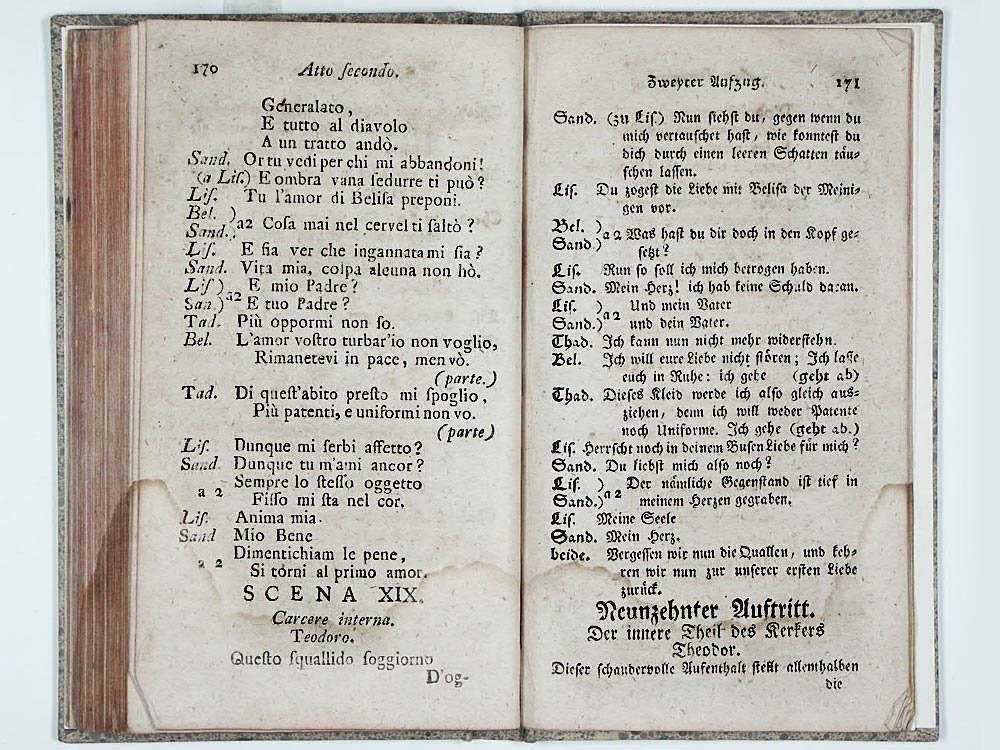 170 Atto ſecondo.
Generalato,
E tutto al diavolo
A un tratto andò.
Sand. Or tu vedi per chi mi abbandoni!
(a Liſ.) E ombra vana ſedurre ti può?
Liſ. Tu l'amor di Beliſa preponi.
Bel. )
Sand.) a2 Coſa mai nel cervel ti ſaltò?
Liſ. E ſia ver che ingannata mi ſia?
Sand. Vita mia, colpa alcuna non hò.
Liſ ) E mio Padre?
San.) a2 E tuo Padre?
Tad. Più oppormi non ſo.
Bel. L'amor voſtro turbar'io non voglio,
Rimanetevi in pace, men vò.
(parte.)
Tad. Di queſt'abito preſto mi ſpoglio,
Più patenti, e uniformi non vo.
(parte)
Liſ. Dunque mi ſerbi affetto?
Sand Dunque tu m'ami ancor?
Sempre lo ſteſſo oggetto
a 2 Fiſſo mi ſta nel cor.
Liſ. Anima mia.
Sand Mio Bene
Dimentichiam le pene,
a 2 Si torni al primo amor.
SCENA XIX.
Carcere interna.
Teodoro.
Queſto ſquallido ſoggiorno
D'og-
Zweyter Aufzug. 171
Sand. (zu Liſ.) Nun ſiehſt du, gegen wenn du
mich vertauſchet haſt, wie konnteſt du
dich durch einen leeren Schatten täu-
ſchen laſſen.
Liſ. Du zogeſt die Liebe mit Beliſa der Meini-
gen vor.
Bel. )
Sand.) a 2 Was haſt du dir doch in den Kopf ge-
ſetzt?
Liſ. Nun ſo ſoll ich mich betrogen haben.
Sand. Mein Herz! ich hab keine Schuld daran.
Liſ. ) Und mein Vater
Sand.) a2 und dein Vater.
Thad. Ich kann nun nicht mehr widerſtehn.
Bel. Ich will eure Liebe nicht ſtören; Ich laſſe
euch in Ruhe: ich gehe (geht ab)
Thad. Dieſes Kleid werde ich alſo gleich aus-
ziehen, denn ich will weder Patente
noch Uniforme. Ich gehe (geht ab.)
Liſ. Herrſcht noch in deinem Buſen Liebe für mich?
Sand. Du liebſt mich alſo noch?
Liſ. ) Der nämliche Gegenſtand iſt tief in
Sand.) a 2 meinem Herzen gegraben.
Liſ. Meine Seele
Sand. Mein Herz.
beide. Vergeſſen wir nun die Quallen, und keh-
ren wir nun zur unſerer erſten Liebe
zurück.
Neunzehnter Auftritt.
Der innere Theil des Kerkers
Theodor.
Dieſer ſchaudervolle Aufenthalt ſtellt allenthalben
die